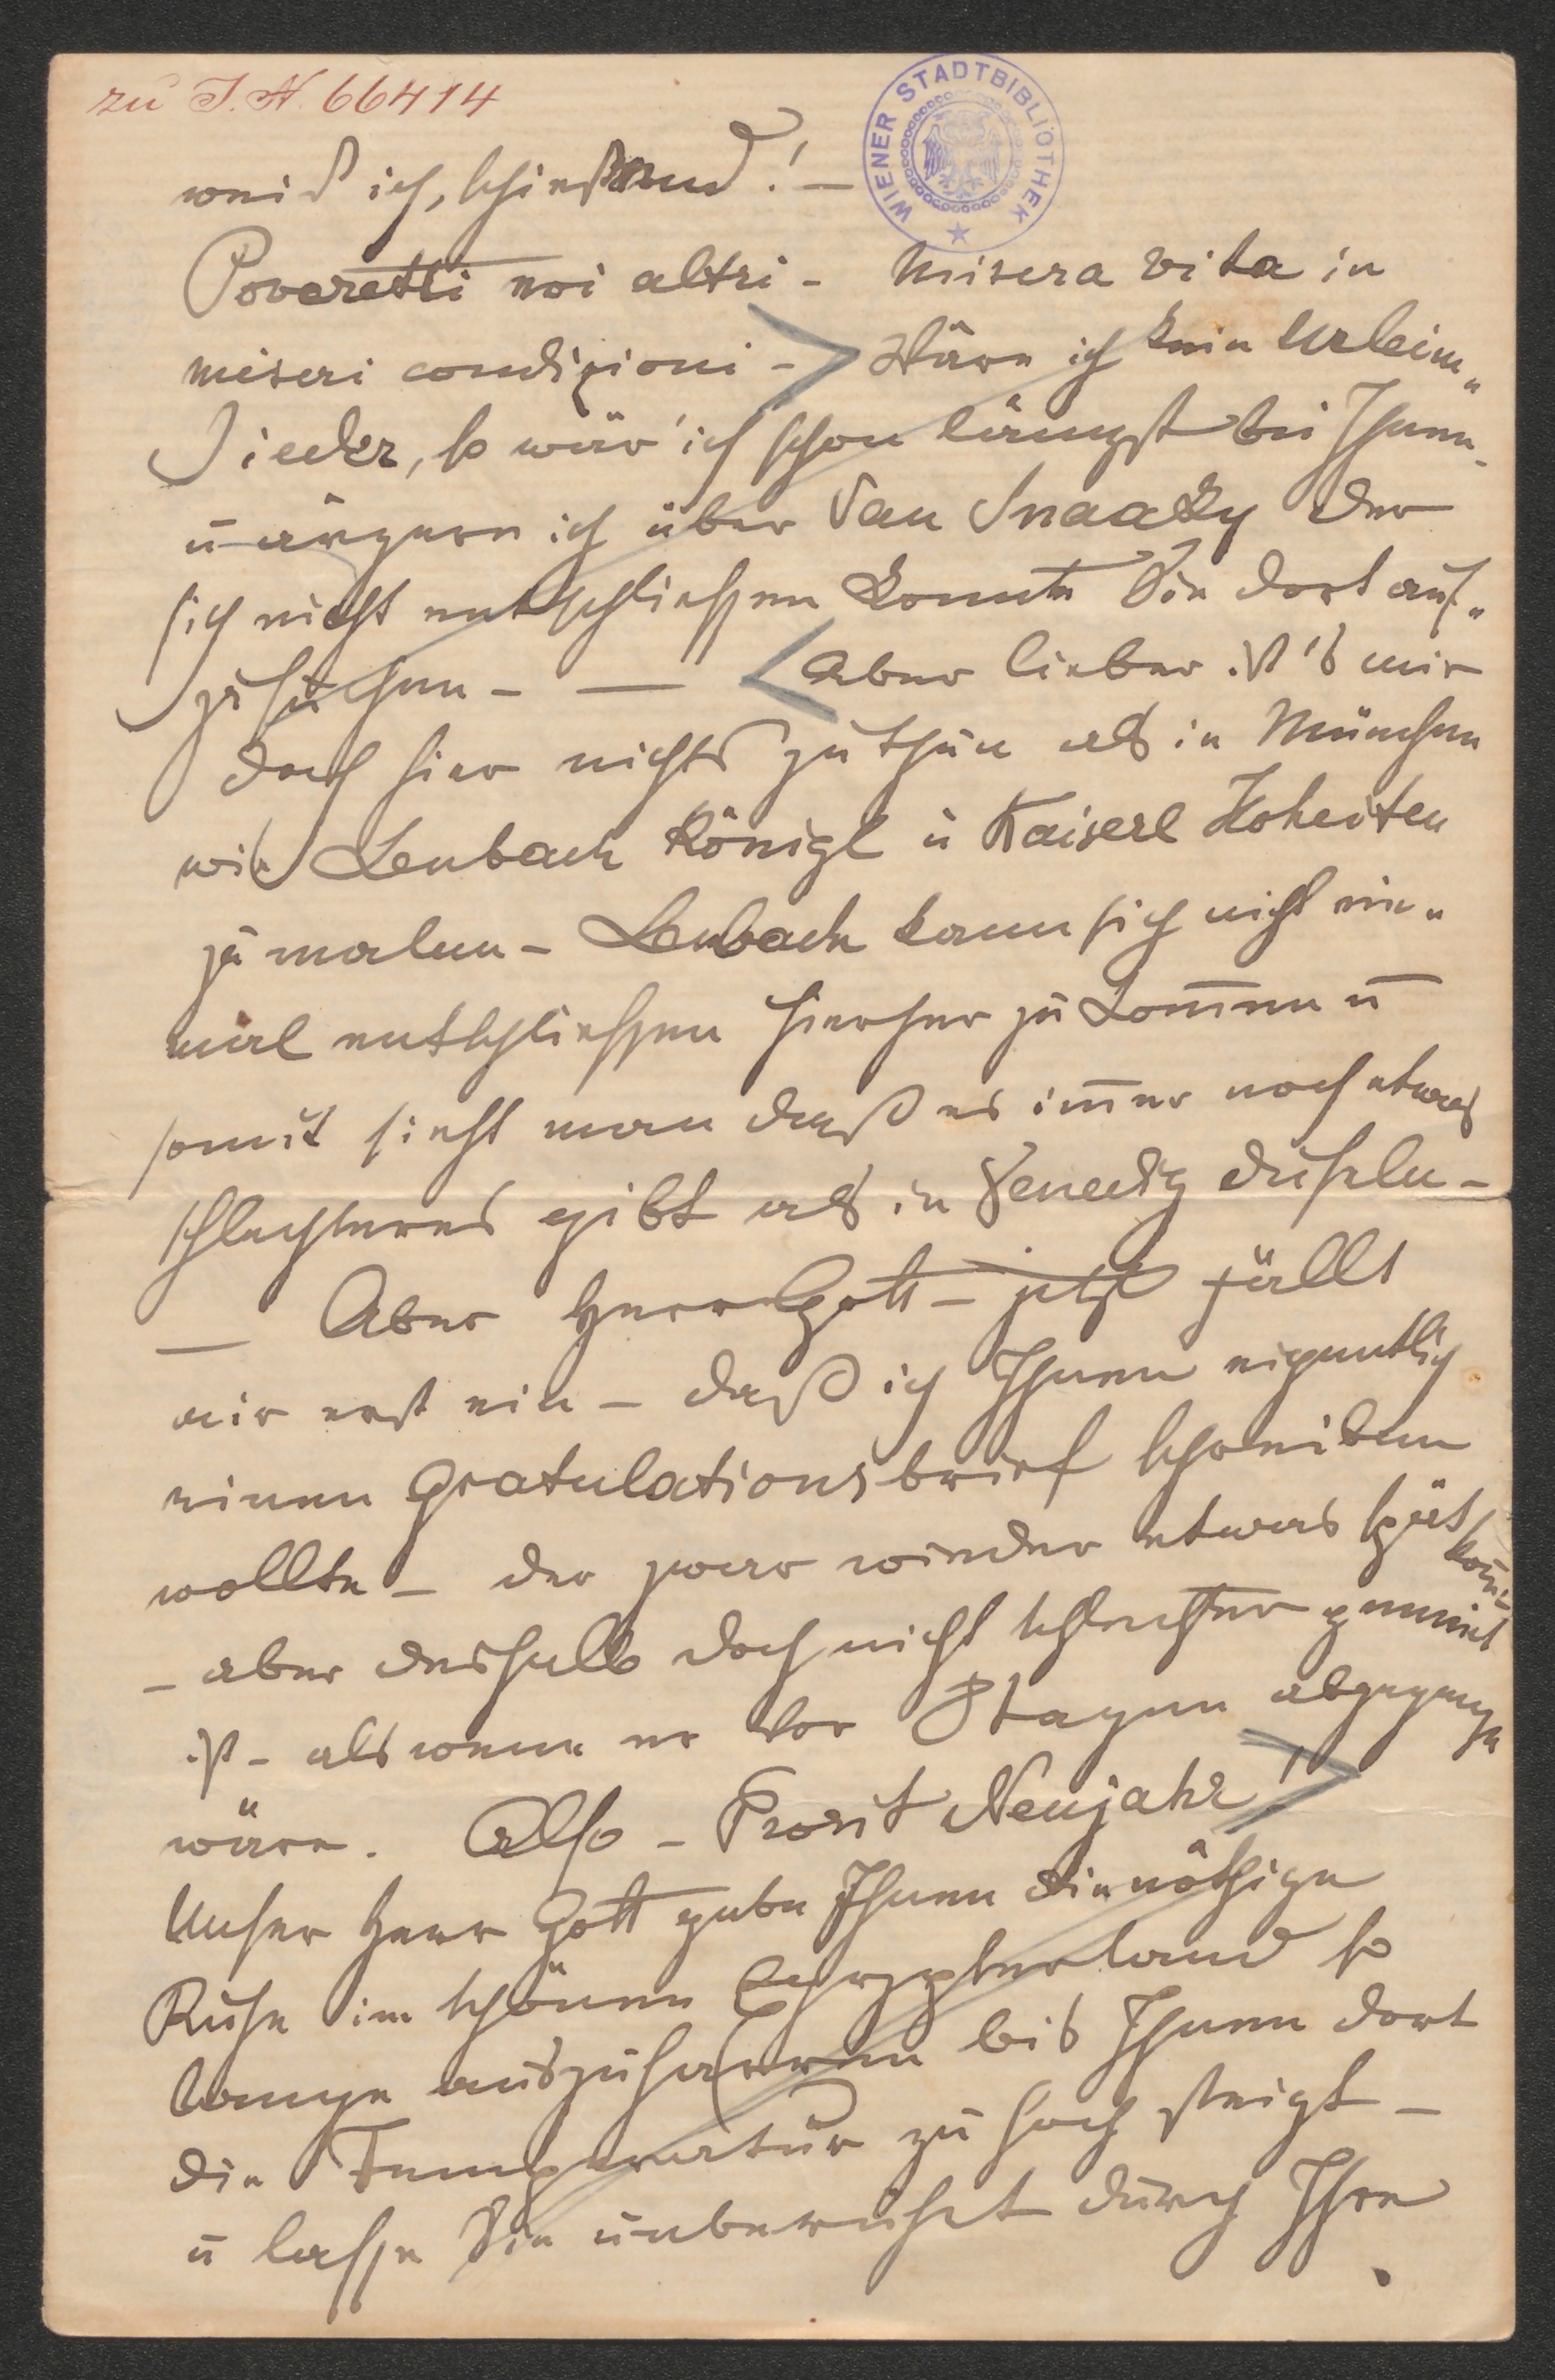 zu I.N. 66414
WIENER STADTBIBLIOTHEK
weiß ich, schießend! –
Poveretti noi altri – Misera vita in
miseri condizioni – Wäre ich kein Urleim„
sieder, so wär' ich schon längst bei Ihnen –
u ärgere ich über Van Snaaky der
sich nicht entschließen konnte Sie dort auf„
zusuchen – — Aber lieber ist's mir
doch hier nichts zu thun als in München
wie Lenbach Königl u Kaiserl Hoheiten
zu malen – Lenbach kann sich nicht ein„
mal entschließen hierher zu kom̅en u
somit sieht man daß es im̅er noch etwas
schlechteres gibt als in Venedig duseln –
— Aber Herr Gott – jetzt fällt
mir erst ein – daß ich Ihnen eigentlich
einen Gratulationsbrief schreiben
wollte – der zwar wieder etwas spät kom̅t
– aber deshalb doch nicht schlechter gemeint
ist – als wenn er vor 8 tagen abgegangen
wäre. Also – Prosit Neujahr!
Unser Herr Gott gebe Ihnen die nöthige
Ruhe im schönen Egypterland so
lange auszuharren bis Ihnen dort
die Temperatur zu hoch steigt –
u lasse Sie unberührt durch Ihre